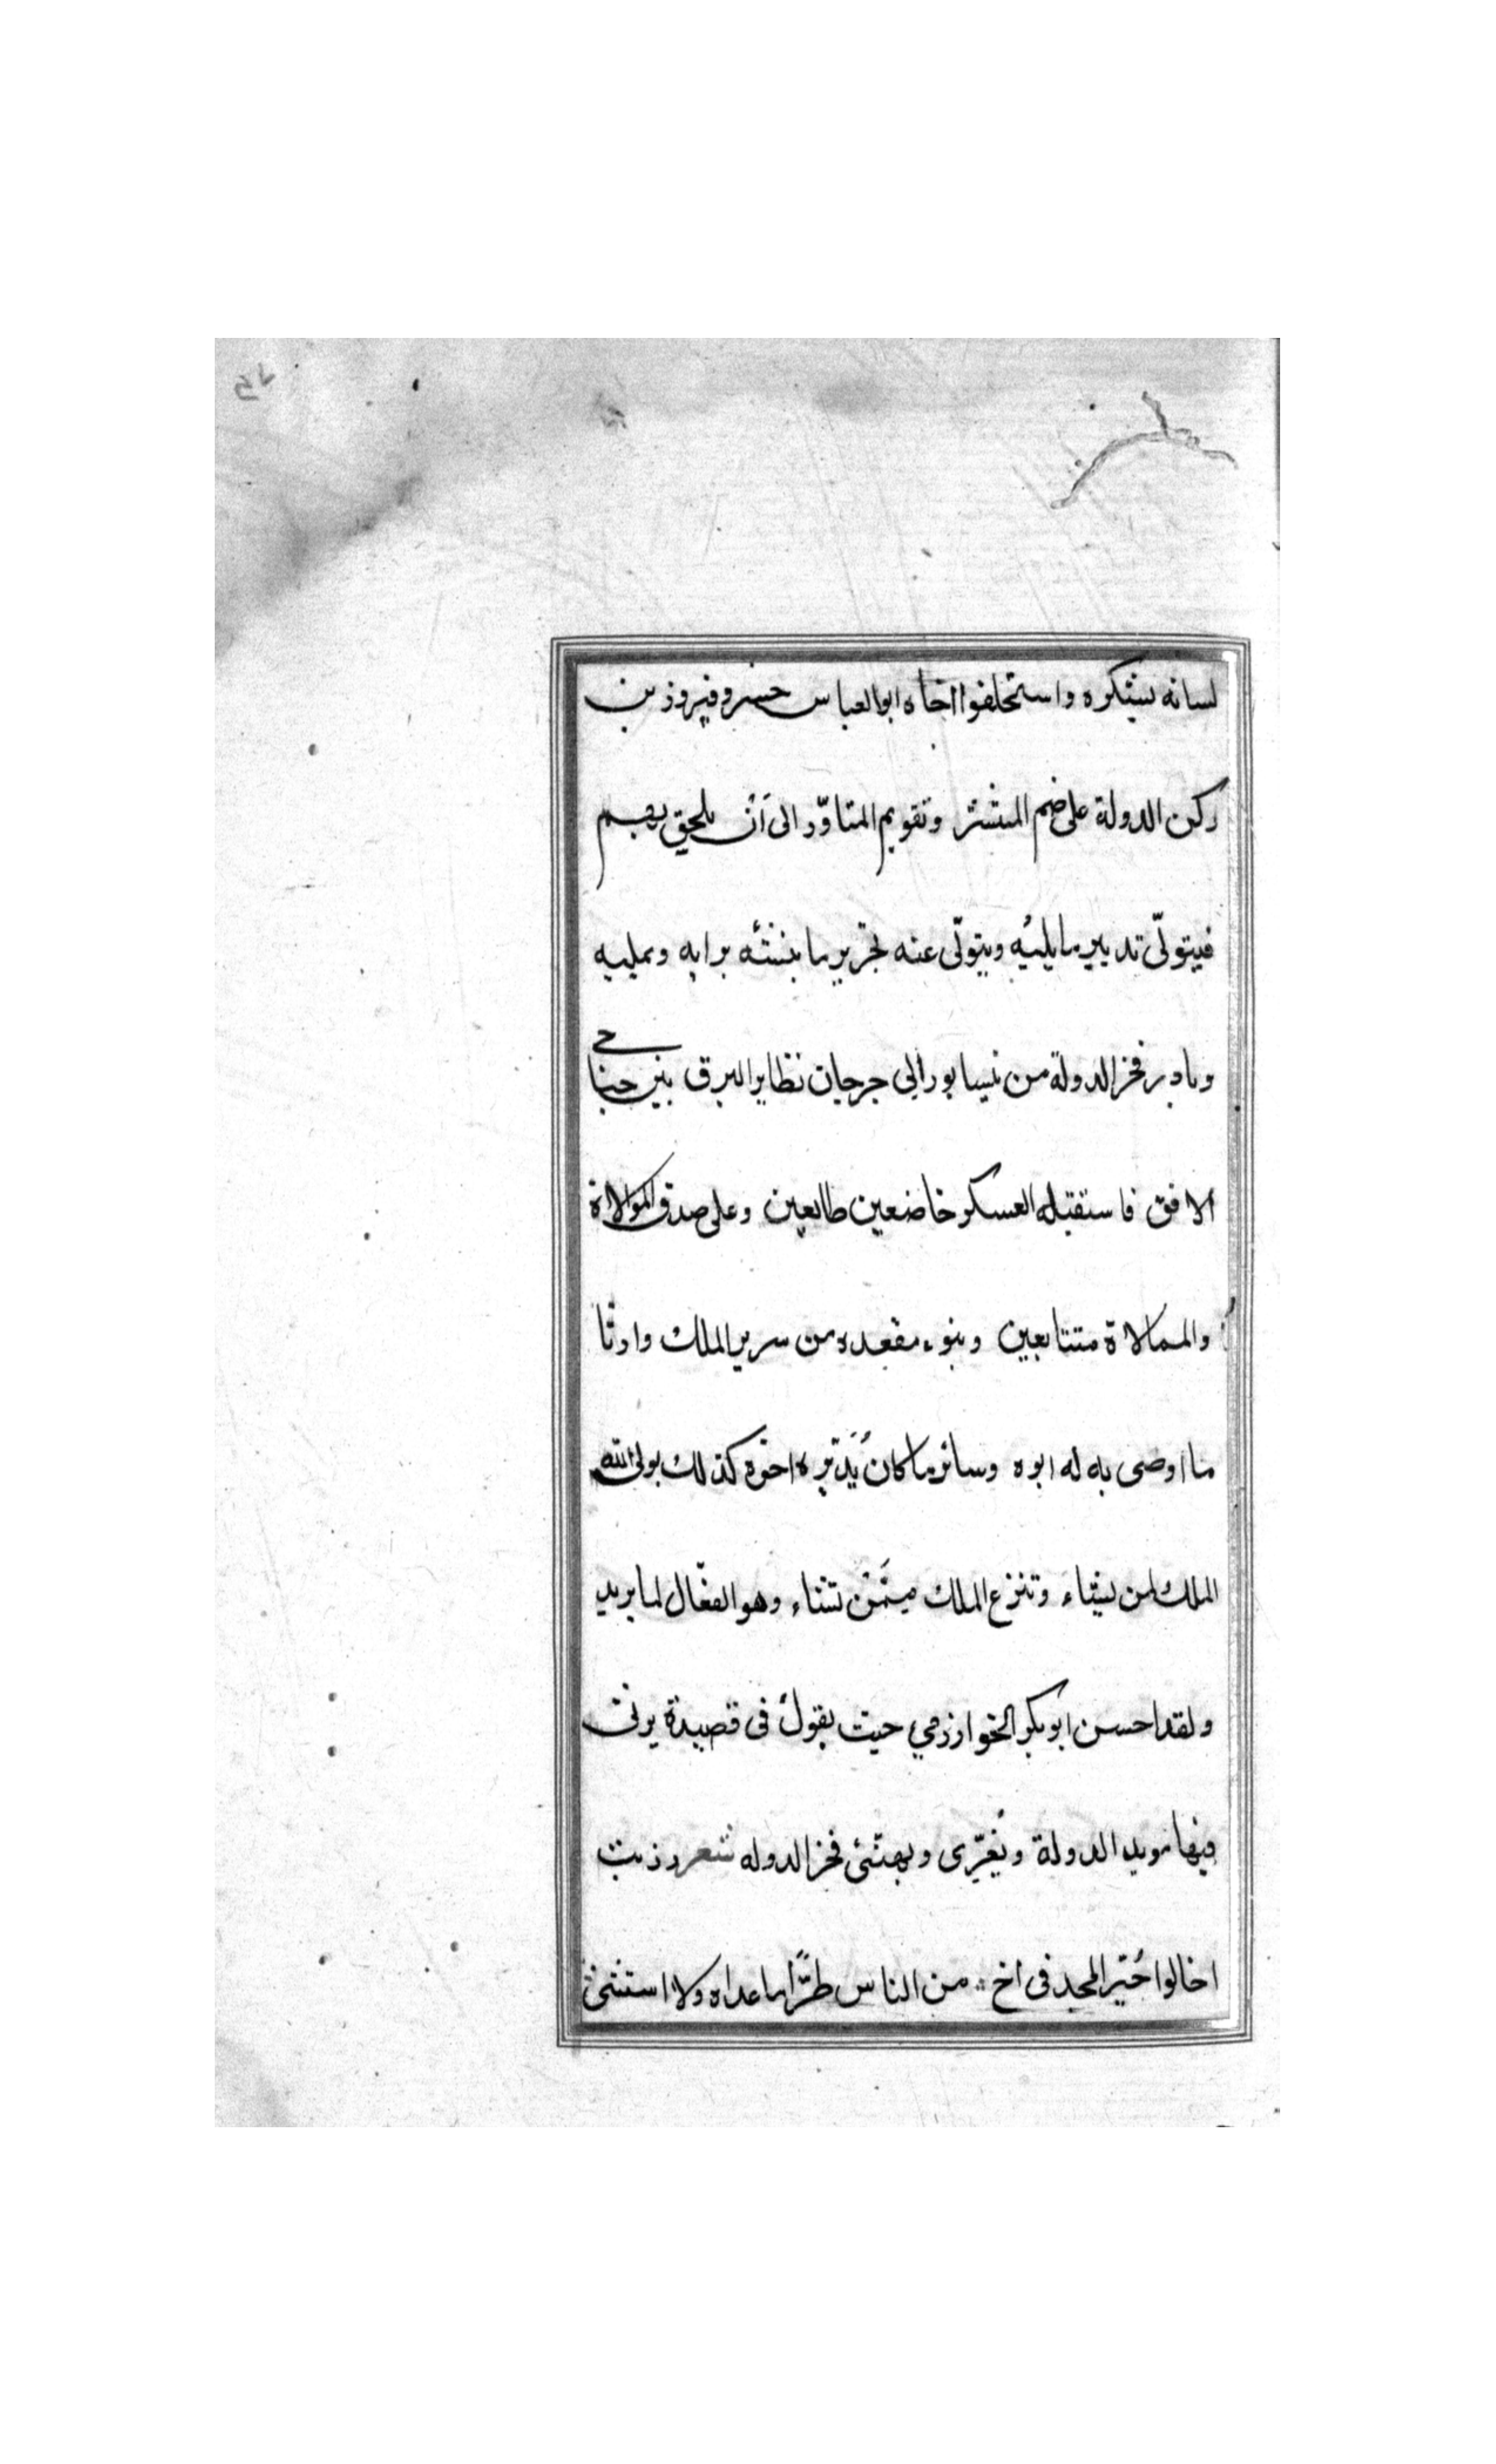 لسانه بشكره واستخلفوا اخاه ابو العباس خسرو فيروز بن
ركن الدولة على ضم المنتشر وتقويم المتأوّد الى أن يلحق بهم
فيتولّى تدبير ما يليه ويتولّى عنه تحرير ما ينشئه برايه ويمليه
وبادر فخر الدولة من نيسابور الى جرجان نظاير البرق بين جناحى
الافق فاستقبله العسكر خاضعين طايعين وعلى صدق الموالاة
والممالاة متتابعين وتبوء مقعده من سرير الملك وارثا
ما اوصى به له ابوه وسائر ما كان يُدبّره اخوه كذلك يولى الله
الملك لمن يشاء وتنزع الملك ممّن تشاء وهو الفعّال لما يريد
ولقد احسن ابو بكر الخوارزمي حيث يقول فى قصيدة يرثى
فيها مويد الدولة ويُعزّى ويهنّئ فخر الدوله شعر رزيت
اخا لو خُيّر المجد فى اخ من الناس طرًّا ما عداه ولا استثنى